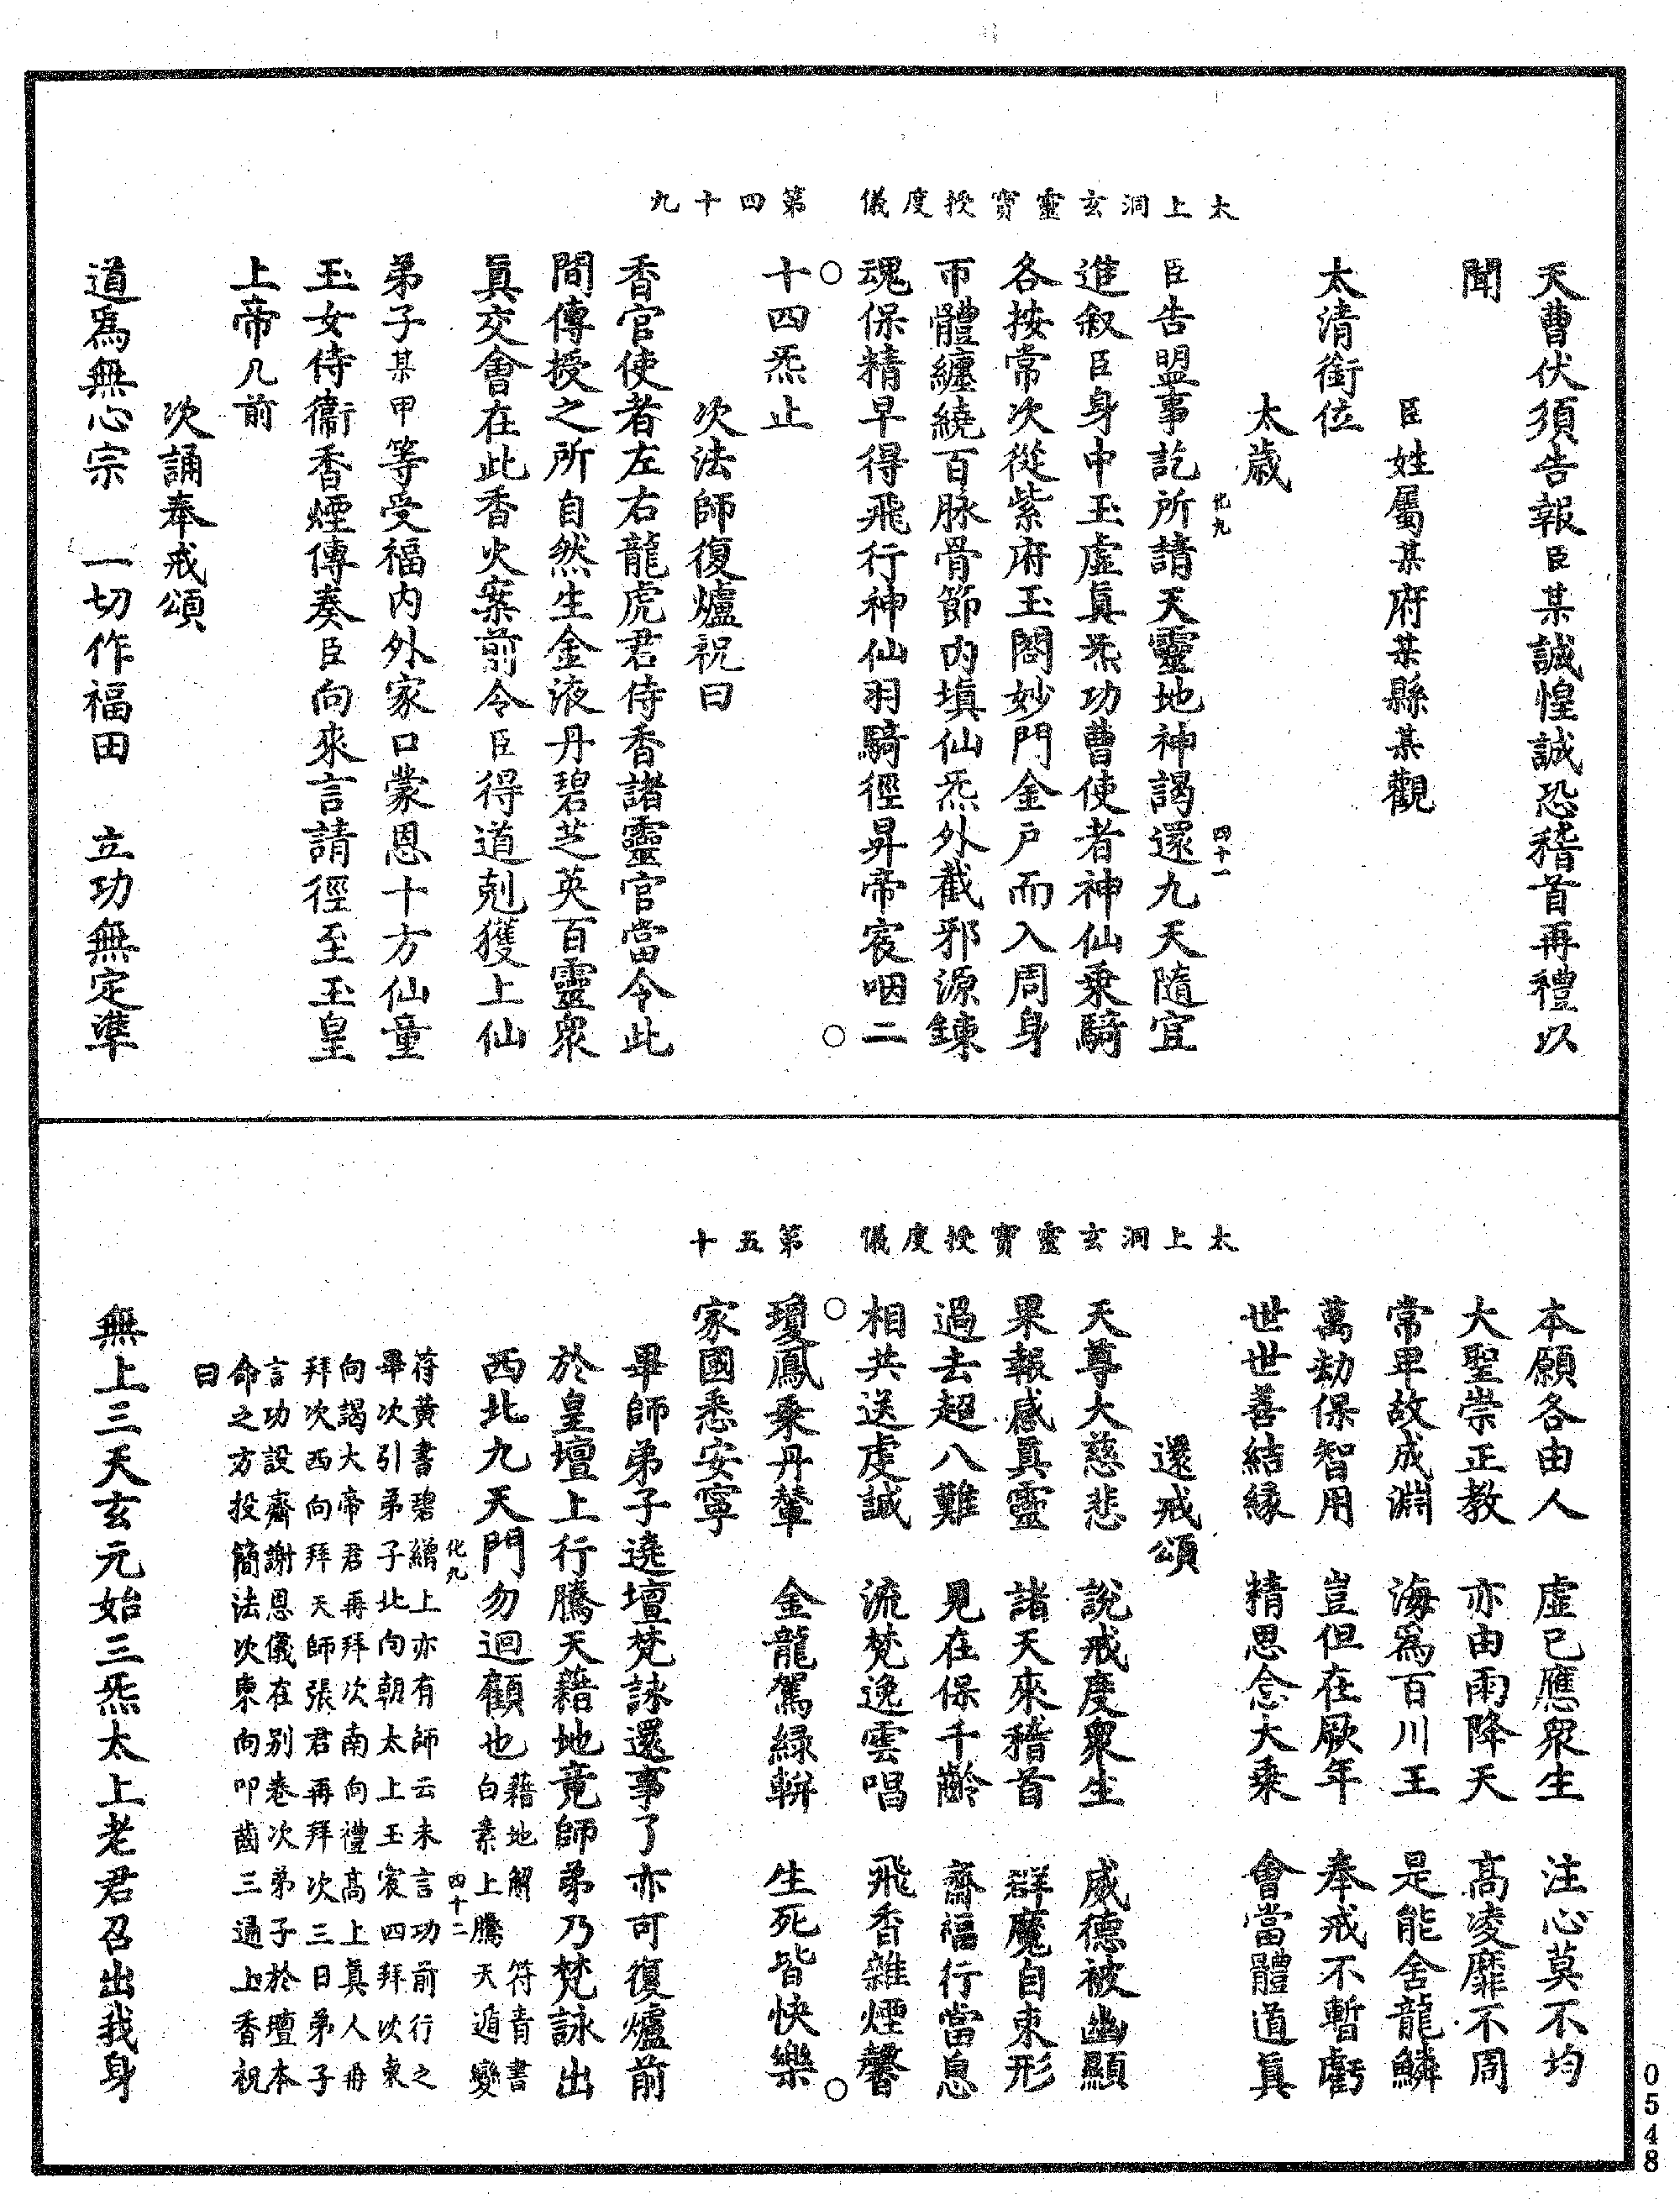 太上洞玄靈寶授度儀　第四十九
天曹伏須告報臣某誠惶誠恐稽首再禮以
聞
臣姓屬某府某縣某觀
太清銜位
太歲
化九　四十一
臣告盟事訖所請天靈地神謁還九天隨宜
進叙臣身中玉虛眞炁功曹使者神仙乘騎
各按常次從紫府玉閤妙門金戶而入周身
帀體纏繞百脉骨節内塡仙炁外截邪源鍊
魂保精早得飛行神仙羽騎徑昇帝宸咽二
十四炁止
次法師復爐祝曰
香官使者左右龍虎君侍香諸靈官當令此
間傳授之所自然生金液丹碧芝英百靈衆
眞交會在此香火案前令臣得道剋獲上仙
弟子某甲等受福内外家口蒙恩十方仙童
玉女侍衞香煙傳奏臣向來言請徑至玉皇
上帝几前
次誦奉戒頌
道爲無心宗　一切作福田　立功無定準
太上洞玄靈寶授度儀　第五十
本願各由人　虛已應衆生　注心莫不均
大聖崇正教　亦由雨降天　高凌靡不周
常卑故成淵　海爲百川王　是能舍龍鱗
萬劫保智用　豈但在厥年　奉戒不暫虧
世世善結緣　精思念大乘　會當體道眞
還戒頌
天尊大慈悲　說戒度衆生　威德被幽顯
果報感眞靈　諸天來稽首　群魔自束形
過去超八難　見在保千齡　齋福行當息
相共送虔誠　流梵逸雲唱　飛香雜煙馨
瓊鳳乘丹輦　金龍駕綠軿　生死皆快樂
家國悉安寧
畢師弟子遶壇梵詠還事了亦可復爐前
於皇壇上行騰天藉地竟師弟乃梵詠出
西北九天門勿迴顧也藉地解　符青書
白素上騰天遁變
化九　四十二
符黄書碧繒上亦有師云未言功前行之
畢次引弟子北向朝太上玉宸四拜次東
向謁大帝君再拜次南向禮高上眞人再
拜次西向拜天師張君再拜次三日弟子
言功設齋謝恩儀在别卷次弟子於壇本
命之方投簡法次東向叩齒三通上香祝
曰
無上三天玄元始三炁太上老君召出我身
0548